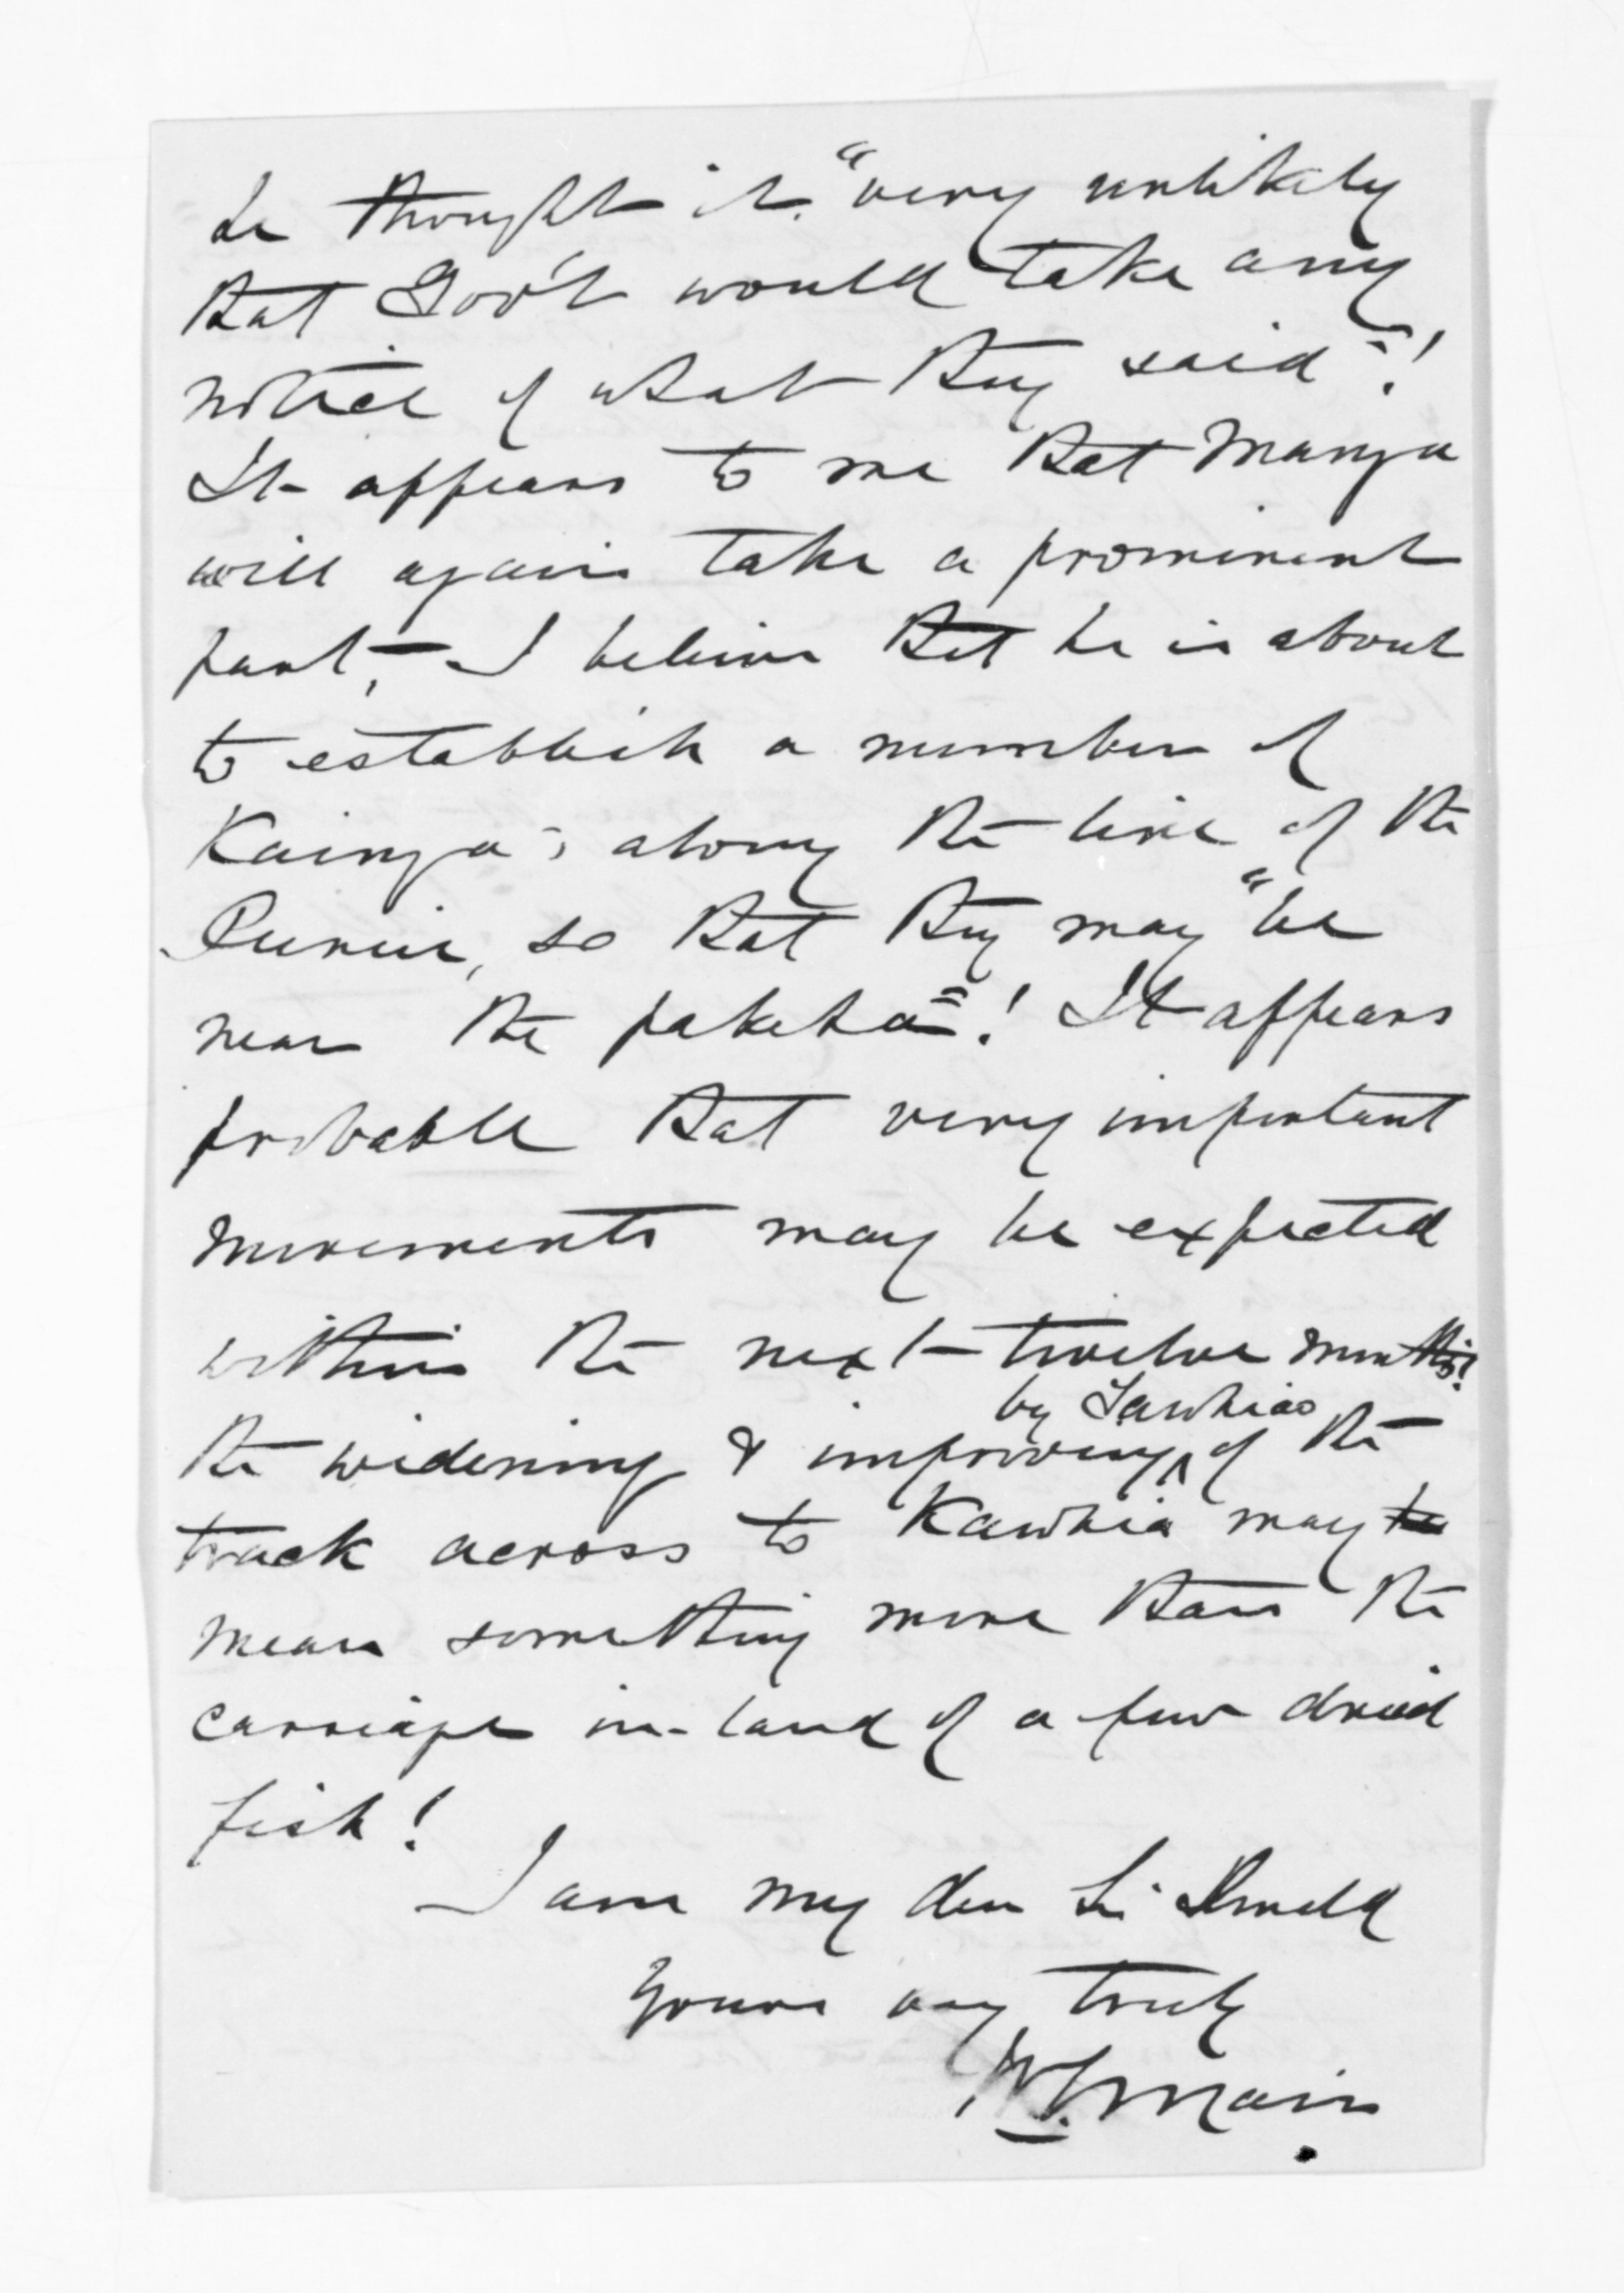 he thought it "very unlikely
that Gov't would take any
notice of what they said"!
It appears to me that Manga
will again take a prominent
part, – I believe that he is about
to establish a number of
Kainga's along the line of the
Puniu, so that they may "be
near the pakeha"! It appears
probable that very important
movements may be expected
within the next twelve months!
by Tawhiao
the widening & improving of the
track across to Kawhia may
mean something more than the
carriage in-land of a few dried
fish!
I am my dear Sir Donald
Yours very truly
W.G. Mair